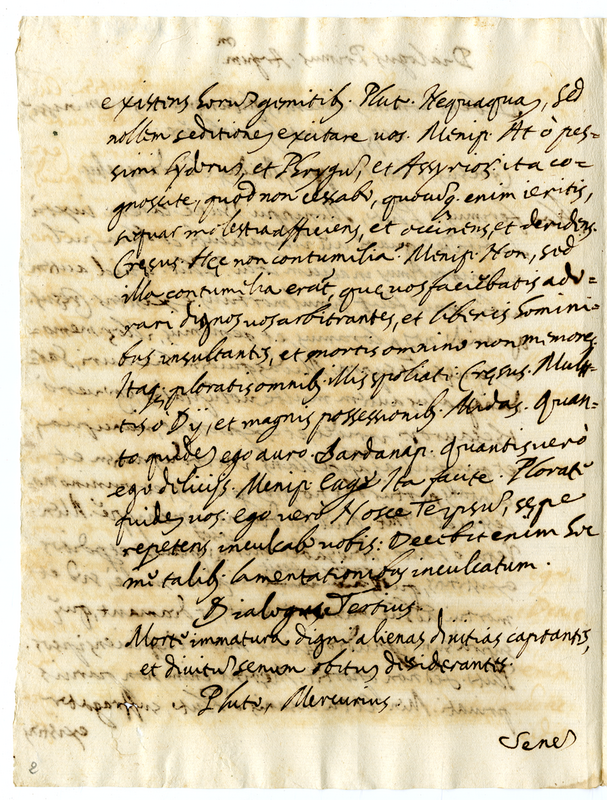 existens horū gemitib. Plut. Nequaquā, sed
nollem seditiones excitare uos. Menip. At ò pes=
simi Lydorū, et Phrygū, et Assyrioꝝ. ita co-
gnoscite, quòd non cessabo, quocūq. enim ieritis,
sequar molestia afficiens, et occinens, et deridens.
Cręsus. Hęc non contumelia? Menip. Non, sed
illa contumelia erat, quę uos faciebatis ado=
rari dignos uos arbitrantes, et liberis homini=
bus insultantes, et mortis omnino non memores.
Itaq. ploratis omnib. illis spoliati. Cręsus. Mult
tis o Dij, et magnis possessionib. Midas. Quan=
to quidē ego auro. Sardanap. Quantis verò
ego delicijs. Menip. Euge Ita facite. Plorate
quidē uos: ego vero Nosce Teipsū, sępe
repetens inculcabo uobis: Decebit enim hoc
talib. lamentationibus inculcatum.
Dialogus Tertius.
Morte immatura digni alienas diuitias captantes,
et diuitū senum obitus desiderantes.
Pluto, Mercurius.
Senē
8